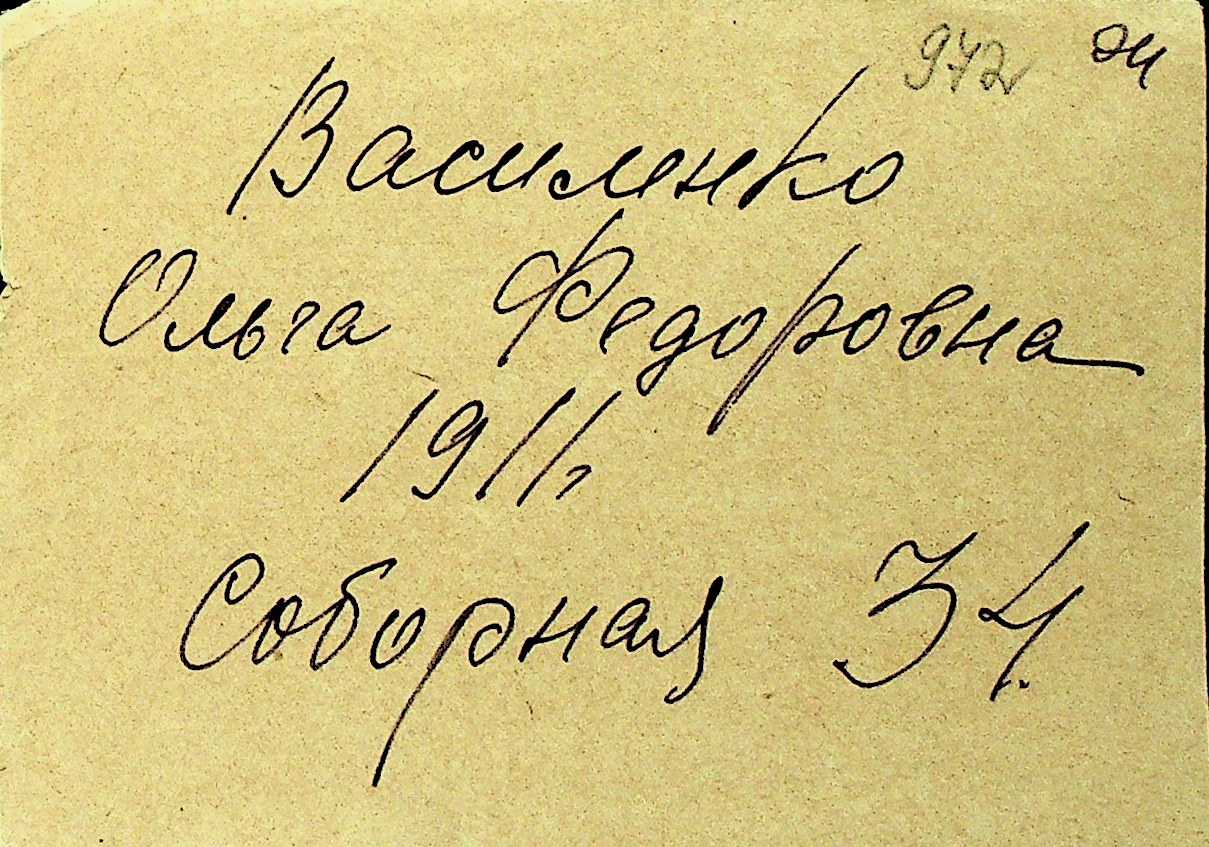 972
Василенко
Ольга Федоровна
1911,
Соборная 34.